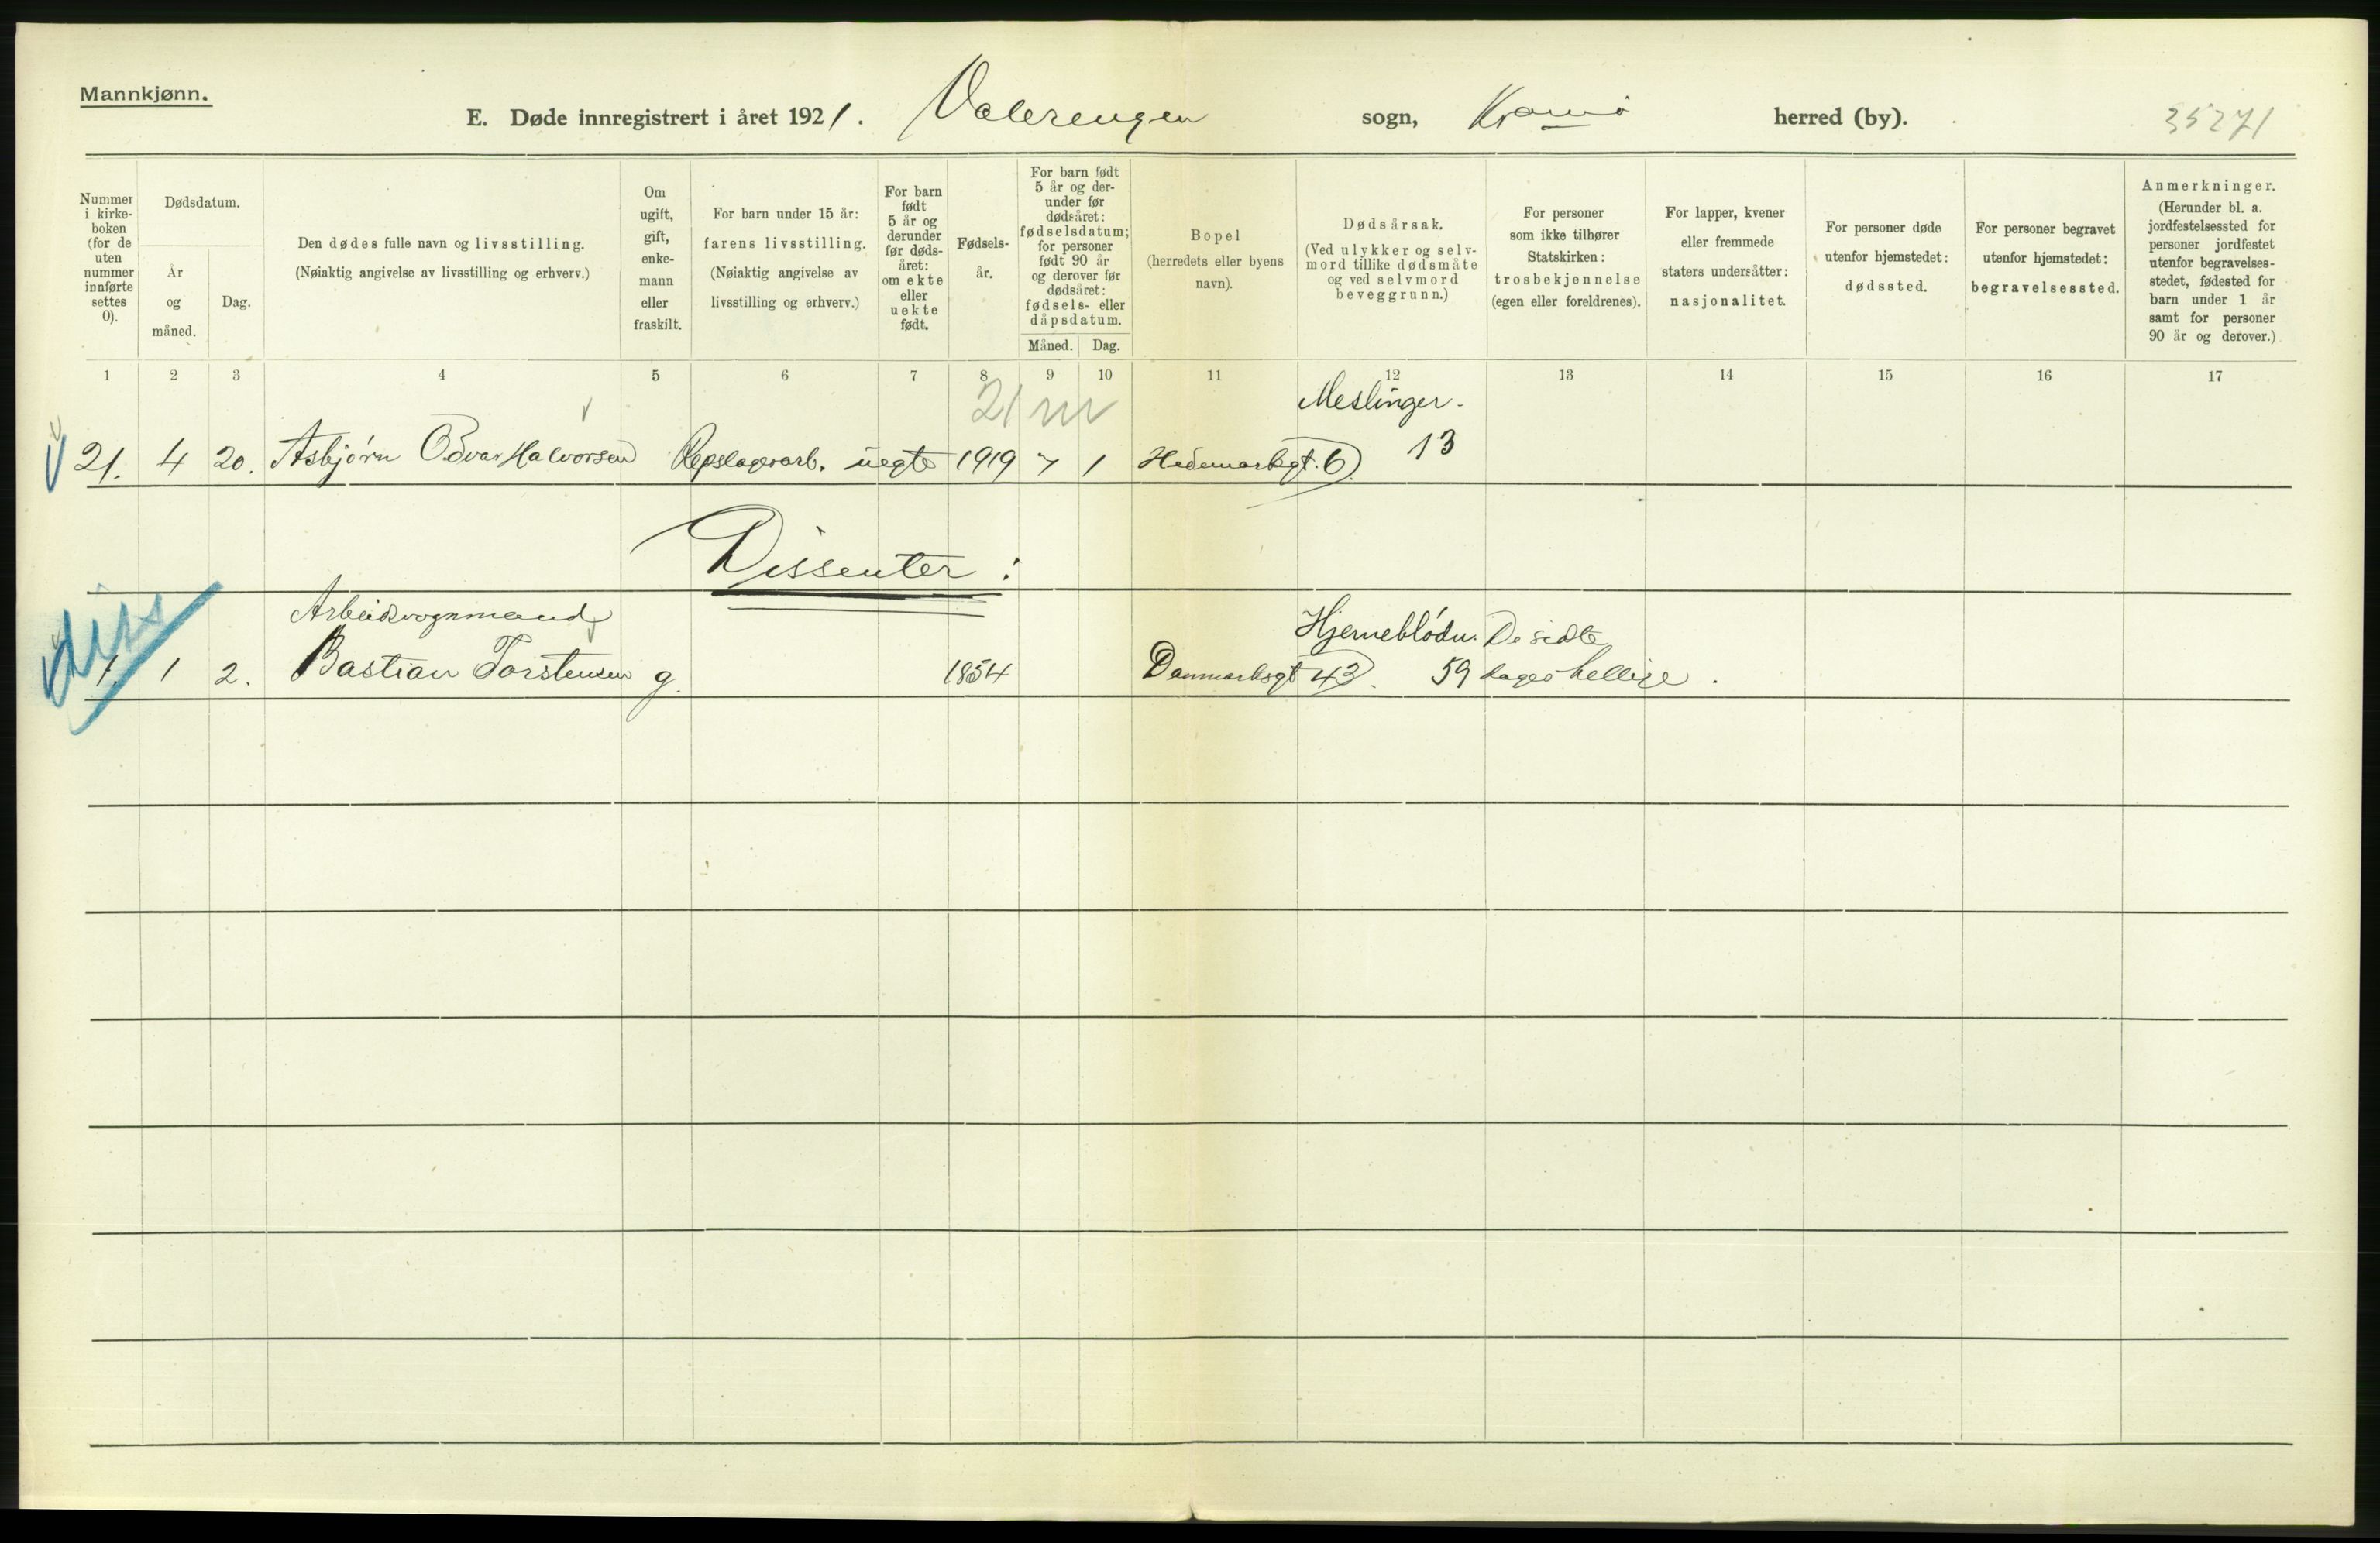 Mannkjønn.
E. Døde innregistrert i året 1921. Vålerengen sogn, Krania herred (by). 35271
Nummer i kirke- boken (for de uten nummer innførte settes 0).
Dødsdatum.
År og måned.
Dag.
Den dødes fulle navn og livsstilling.
(Nøiaktig angivelse av livsstilling og erhverv.)
Om ugift, gift, enke- mann eller fraskilt.
For barn under 15 år:
farens livsstilling.
(Nøiaktig angivelse av
livsstilling og erhverv.)
For barn født 5 år og derunder før døds- året: om ekte eller uekte født.
Fødsels- år.
For barn født 5 år og der- under før dødsåret: fødselsdatum; for personer født 90 år og derover før dødsåret: fødsels- eller dåpsdatum.
Måned. Dag.
Bopel
(herredets eller byens
navn).
Dødsårsak.
(Ved ulykker og selv-
mord tillike dødsmåte
og ved selvmord
beveggrunn.)
For personer
som ikke tilhører
Statskirken:
trosbekjennelse
(egen eller foreldrenes).
For lapper, kvener
eller fremmede
staters undersåtter:
nasjonalitet.
For personer døde
utenfor hjemstedet:
dødssted.
For personer begravet
utenfor hjemstedet:
begravelsessted.
Anmerkninger.
(Herunder bl. a.
jordfestelsessted for
personer jordfestet
utenfor begravelses-
stedet, fødested for
barn under 1 år
samt for personer
90 år og derover.)
1 2 3 4 5 6 7 8 9 10 11 12 13 14 15 16 17
21 m Meslinger.
21. 4 20. Asbjørn Odvar Halvorsen Repslagerarb. uegte 1919 7 1 Hedemarksgt. 6 13
Dissenter:
diss
Arbeidsvognmand Hjerneblødn. De sidste
1. 1 2. Bastian Torstensen g. 1854 Danmarksgt 43. 59 dages hellige.